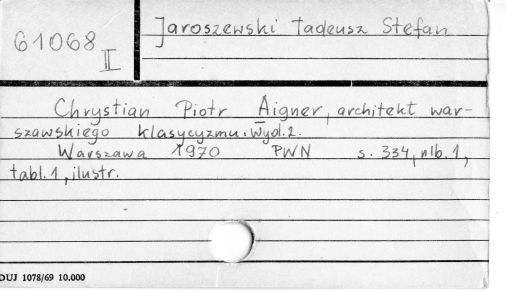 61068
II
Jaroszewski Tadeusz Stefan
Chrystian Piotr Aigner, architekt war-
szawskiego klasycyzmu. Wyd. 2.
Warszawa 1970 PWN s. 334, nlb. 1,
tabl. 1, ilustr.
DUJ 1078/69 10.000